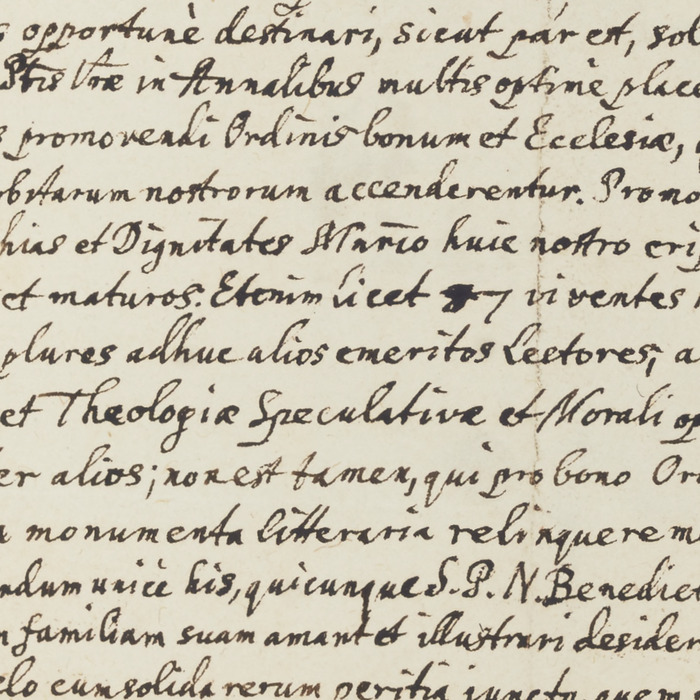 s opportunè destinari, sicut pár est, sol
Ptis Vræ in Annalibus multis optimè place
s promovendi Ordinis bonum et Ecclesiæ,
rbitarum nostrorum accenderentur. Promo
hias et Dignitates Mnrio huic nostro eri
et maturos. Etenim licet 7 viventes
plures adhuc alios emeritos Lectores, a
et Theologiæ Speculativæ et Morali op
er alios; non est tamen, qui pro bono Or
monumenta litteraria relinquere m
ndum unicè his, quicunque S. P. N. Benedict
n familiam suam amant et illustrari desider
elo cum solida rerum peritia juncto, quem